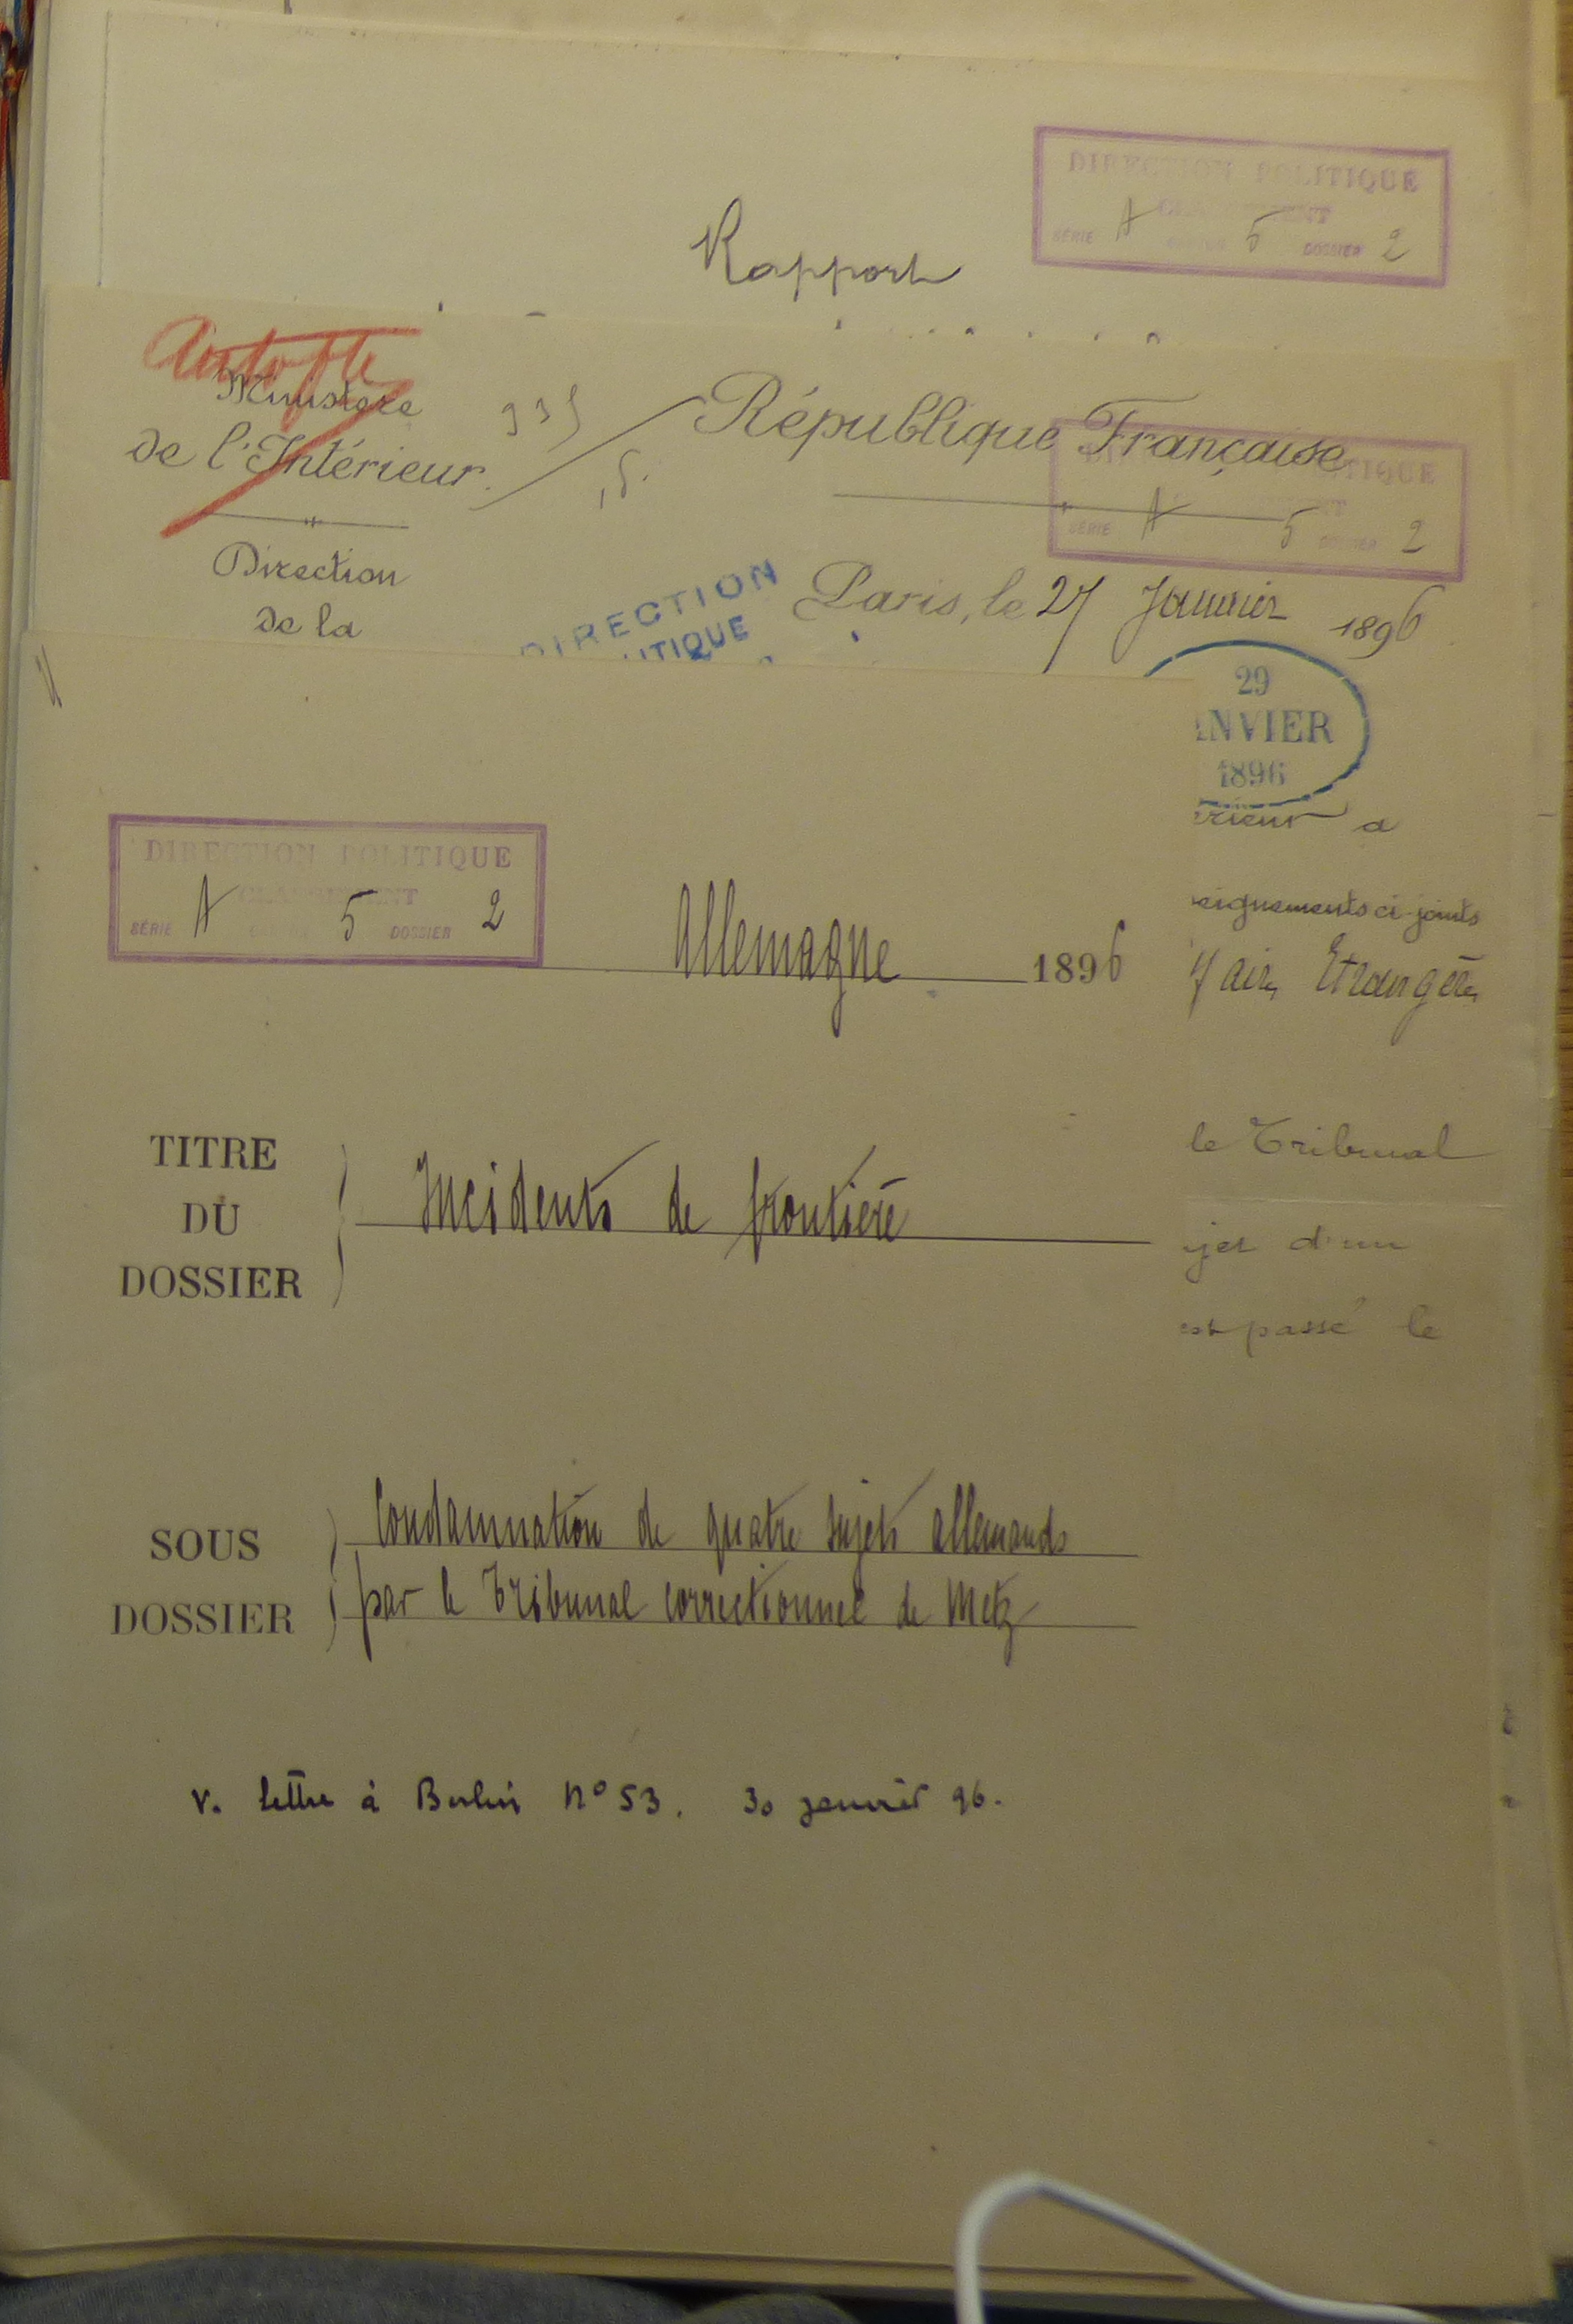 DIRECTION POLITIQUE
CLASSEMENT
SÉRIE A 5 DOSSIER 2
Rapport
Ministère
de l'Intérieur.
Direction
de la
République Française
POLITIQUE
SÉRIE A 5 DOSSIER 2
DIRECTION
ITIQUE
Paris, le 27 Janvier 1896
29
ANVIER
1896
érieur a
eignements ci-joints
ff aires Etrangères
le Tribunal
ujet d'un
est passé le
DIRECTION POLITIQUE
CLASSEMENT
SÉRIE A 5 DOSSIER 2
Allemagne 1896
TITRE
DU
DOSSIER
Incidents de frontière
SOUS
DOSSIER
Condamnation de quatre sujets allemands
par le Tribunal correctionnel de Metz
V. lettre à Berlin N° 53. 30 janvier 96.